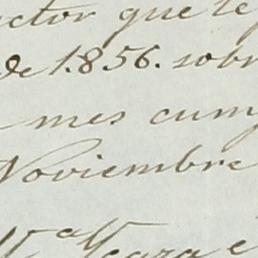 ctor que te
de 1.856. sobr
mes cump
Noviembre